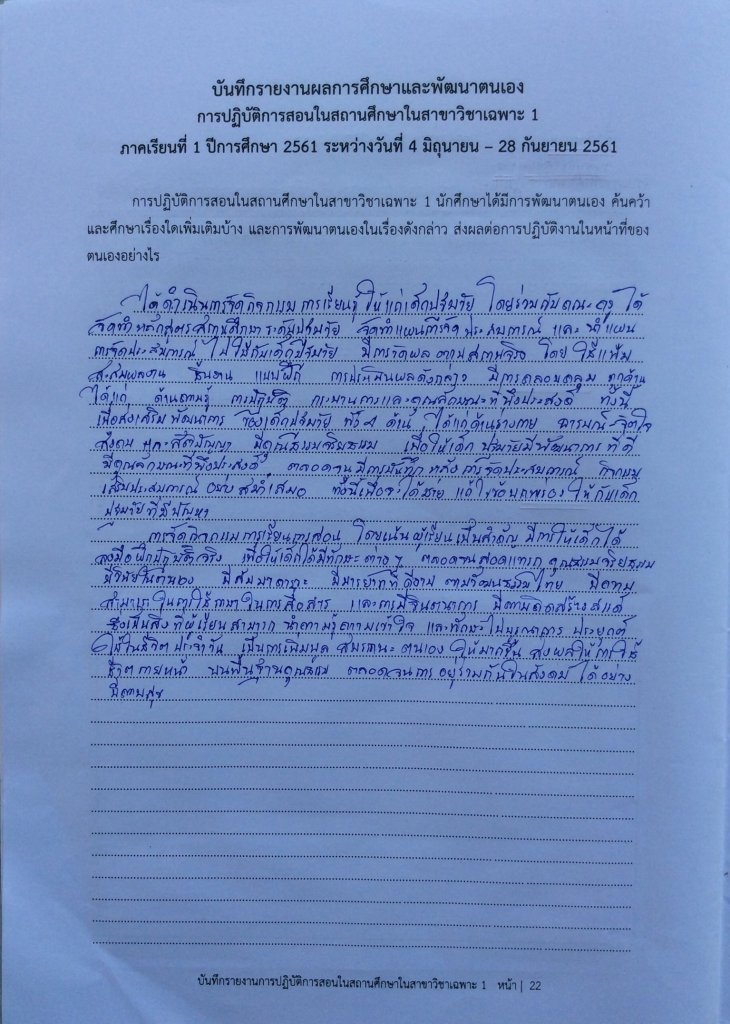 บันทึกรายงานผลการศึกษาและพัฒนาตนเอง
การปฏิบัติการสอนในสถานศึกษาในสาขาวิชาเฉพาะ 1
ภาคเรียนที่ 1 ปีการศึกษา 2561 ระหว่างวันที่ 4 มิถุนายน – 28 กันยายน 2561
การปฏิบัติการสอนในสถานศึกษาในสาขาวิชาเฉพาะ 1 นักศึกษาได้มีการพัฒนาตนเอง ค้นคว้า
และศึกษาเรื่องใดเพิ่มเติมบ้าง และการพัฒนาตนเองในเรื่องดังกล่าว ส่งผลต่อการปฏิบัติงานในหน้าที่ของ
ตนเองอย่างไร
ได้ดำเนินการจัดกิจกรรม การเรียนรู้ ให้แก่เด็กปฐมวัย โดยร่วมกับคณะครู ได้
จัดทำหลักสูตรสถานศึกษาระดับปฐมวัย จัดทำแผนการจัดประสบการณ์ และ นำแผน
การจัดประสบการณ์ ไปใช้กับเด็กปฐมวัย มีการวัดผล ตามสภาพจริง โดย ใช้แฟ้ม
สะสมผลงาน ชิ้นงาน แบบฝึก การประเมินผลดังกล่าว มีการครอบคลุม ทุกด้าน
ได้แก่ ด้านความรู้ การปฏิบัติ กระบวนการและคุณลักษณะที่พึงประสงค์ ทั้งนี้
เพื่อส่งเสริมพัฒนาการ ของเด็กปฐมวัย ทั้ง 4 ด้าน ได้แก่ด้านร่างกาย อารมณ์ จิตใจ
สังคม และสติปัญญา มีคุณธรรมจริยธรรม เพื่อให้เด็กปฐมวัยมีพัฒนาการ ที่ดี
มีคุณลักษณะที่พึงประสงค์ ตลอดจนมีการบันทึก หลังการจัดประสบการณ์ กิจกรรม
เสริมประสบการณ์ อย่างสม่ำเสมอ ทั้งนี้เพื่อจะได้ช่วย แก้ไขข้อบกพร่อง ให้กับเด็ก
ปฐมวัยที่มีปัญหา
การจัดกิจกรรมการเรียนการสอน โดยเน้นผู้เรียนเป็นสำคัญ มีการให้เด็กได้
ลงมือฝึกปฏิบัติจริง เพื่อให้เด็กได้มีทักษะต่าง ๆ ตลอดจนสอดแทรก คุณธรรมจริยธรรม
มีวินัยในตนเอง มีสัมมาคารวะ มีมารยาทที่ดีงาม ตามวัฒนธรรมไทย มีความ
สามารถในการใช้ภาษาในการสื่อสาร และการมีจินตนาการ มีความคิดสร้างสรรค์
ซึ่งเป็นสิ่งที่ผู้เรียนสามารถ นำความรู้ความเข้าใจ และทักษะไปบูรณาการ ประยุกต์
ใช้ในชีวิตประจำวัน เป็นการเพิ่มพูน สมรรถนะ ตนเอง ให้มากขึ้น ส่งผลให้การใช้
ชีวิตภายหน้า บนพื้นฐานคุณธรรม ตลอดจนการอยู่ร่วมกันในสังคม ได้อย่าง
มีความสุข
บันทึกรายงานการปฏิบัติการสอนในสถานศึกษาในสาขาวิชาเฉพาะ 1 หน้า | 22